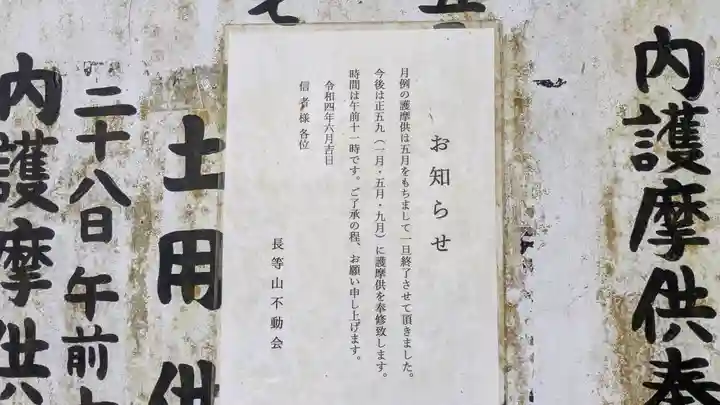 内護摩供奉
五
七
お知らせ
月例の護摩供は五月をもちまして一旦終了させて頂きました。
今後は正五九（一月・五月・九月）に護摩供を奉修致します。
時間は午前十一時です。ご了承の程、お願い申し上げます。
令和四年六月吉日
信者様各位
長等山不動会
土用供
二十八日午前
内護摩供